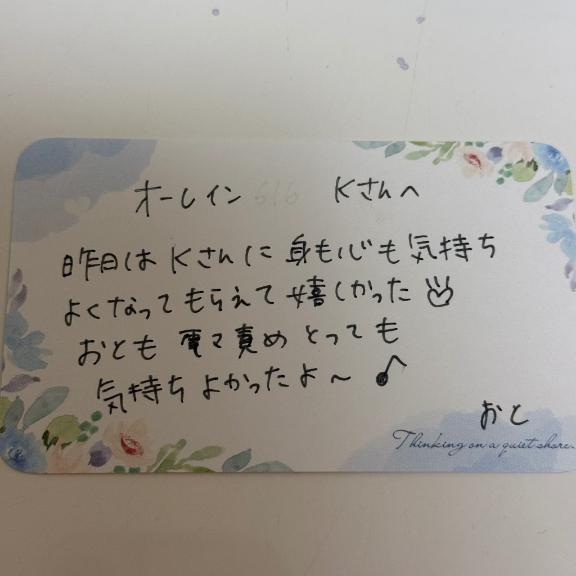 オーレイン 616 Kさんへ
昨日は Kさんに 身も心も 気持ち
よくなって もらえて 嬉しかった
おとも 電マ責め とっても
気持ち よかったよ〜 ♪
おと
Thinking on a quiet shore.